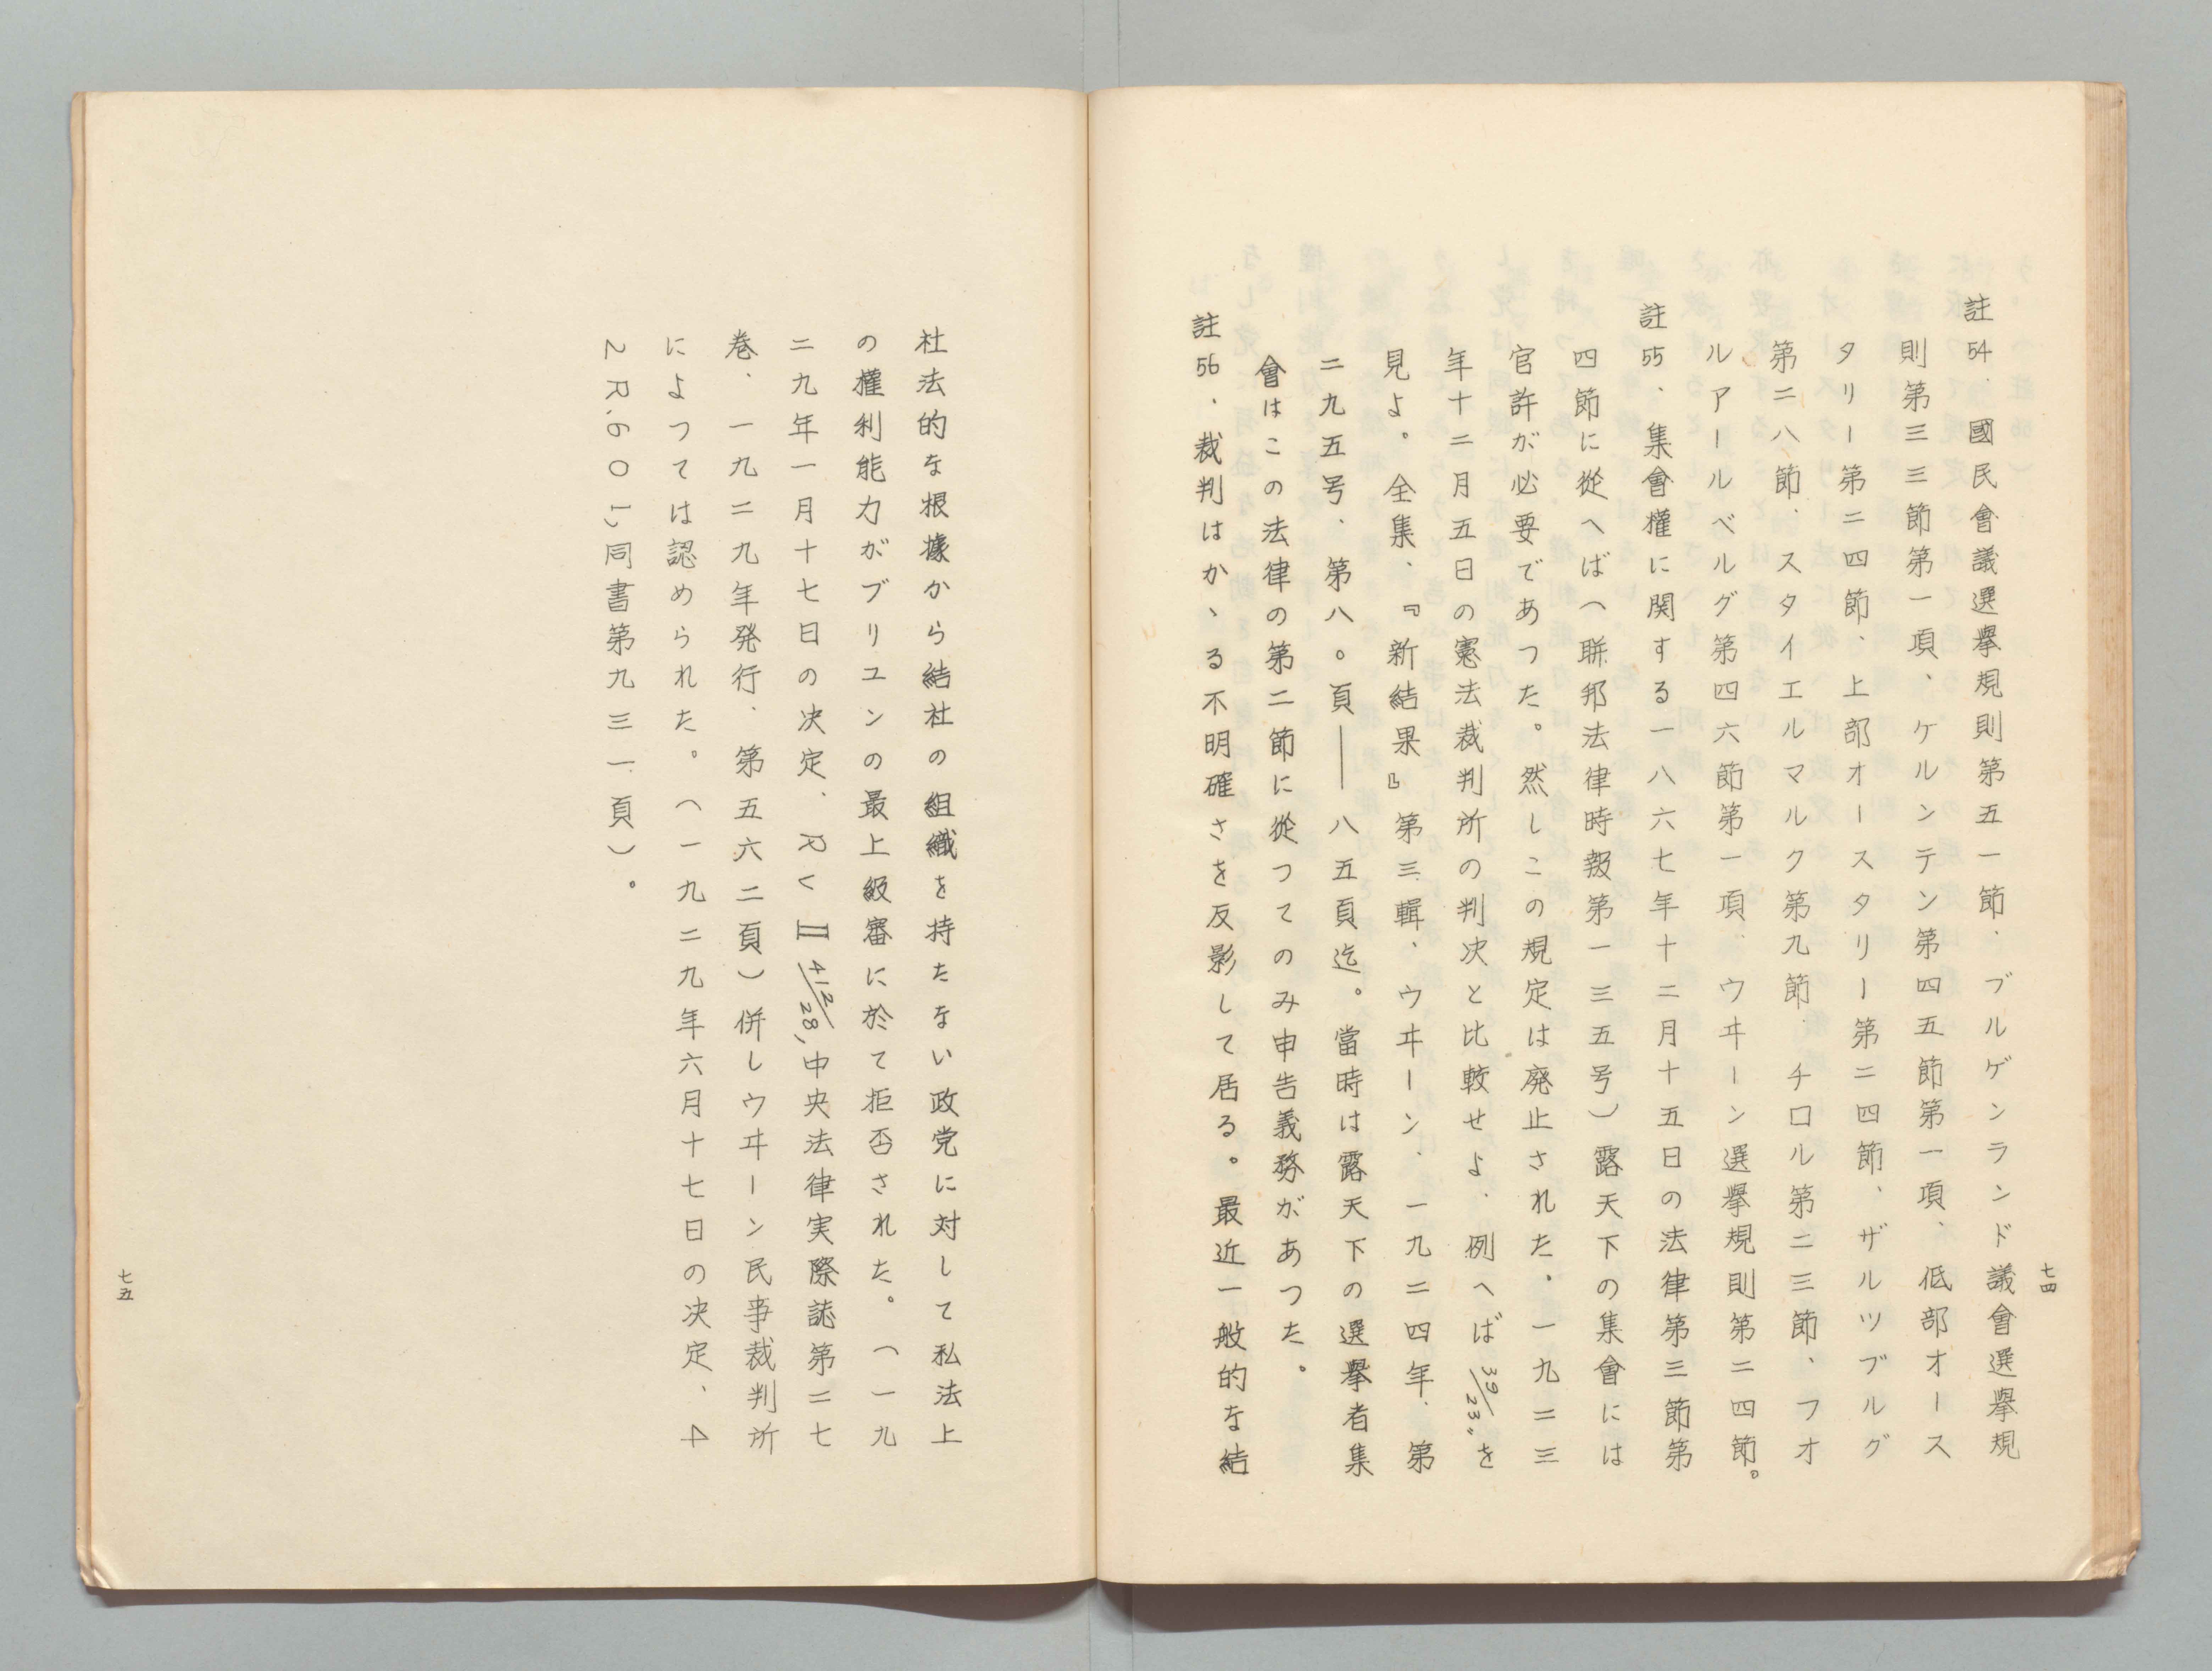 七四
註54、國民會議選擧規則第五一節、ブルゲンランド議會選擧規
則第三三節第一項、ケルンテン第四五節第一項、低部オース
タリー第二四節、上部オースタリー第二四節、ザルツブルグ
第二八節、スタイエルマルク第九節、チロル第二三節、フオ
ルアールベルグ第四六節第一項、ウヰーン選擧規則第二四節。
註55、集會權に関する一八六七年十二月十五日の法律第三節第
四節に從へば(聯邦法律時報第一三五号)露天下の集會には
官許が必要であつた。然しこの規定は廃止された、一九二三
年十二月五日の憲法裁判所の判決と比較せよ、例へば39/23,,を
見よ。全集、『新結果』第三輯、ウヰーン、一九二四年、第
二九五号、第八〇頁——八五頁迄。當時は露天下の選擧者集
會はこの法律の第二節に從つてのみ申告義務があつた。
註56、裁判はかヽる不明確さを反影して居る。最近一般的な結
社法的な根據から結社の組織を持たない政党に対して私法上
の權利能力がブリユンの最上級審に於て拒否された。(一九
二九年一月十七日の決定、RV II 412/28,中央法律実際誌第二七
巻、一九二九年発行、第五六二頁)併しウヰーン民事裁判所
によつては認められた。(一九二九年六月十七日の決定、4
2R.601,同書第九三一頁)。
七五